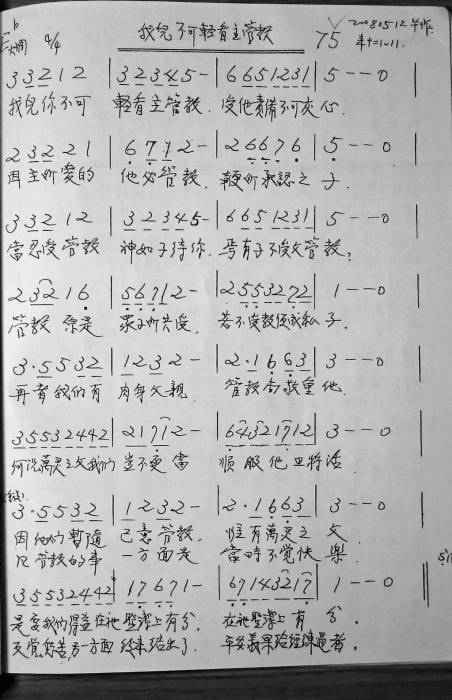 ♭E大调 4/4 我兒不可輕看主管教 75 20080512
來十二1-11.
3 3 2 1 2 | 3 2 3 4 5 - | 6 6 5 1 2 3 1 | 5 - - 0
我兒你不可 輕看主管教. 受他責備不可灰心.
2 3 2 2 1 | 6 7 1 2 - | 2 6 6 7 6 | 5 - - 0
因主所愛的 他必管教. 鞭所承認之子.
3 3 2 1 2 | 3 2 3 4 5 - | 6 6 5 1 2 3 1 | 5 - - 0
當忍受管教 神如子待你. 焉有子不受父管教?
2 3 2 1 6 | 5 6 7 1 2 - | 2 5 5 3 2 7 2 | 1 - - 0
管教原是 眾子所共受. 若不受教便成私子.
3 · 5 5 3 2 | 1 2 3 2 - | 2 · 1 6 6 3 | 3 - - 0
再者我們有 肉身父親. 管教尚敬重他.
3 5 5 3 2 4 4 2 | 2 1 7 1 2 - | 6 4 3 2 1 7 1 2 | 3 - - 0
何況萬靈之父我們 豈不更當 順服他且得活
3 · 5 5 3 2 | 1 2 3 2 - | 2 · 1 6 6 3 | 3 - - 0
因他們暫隨 己意管教. 惟有萬靈之父
凡管教的事 一方面是 當時不覺快樂
3 5 5 3 2 4 4 2 | 1 7 6 7 1 - | 6 7 1 4 3 2 1 7 | 1 - - 0
是要我們得益在祂聖潔上有分. 在祂聖潔上有分.
反覺愁苦一方面終來結出了. 平安義果給經練過者.